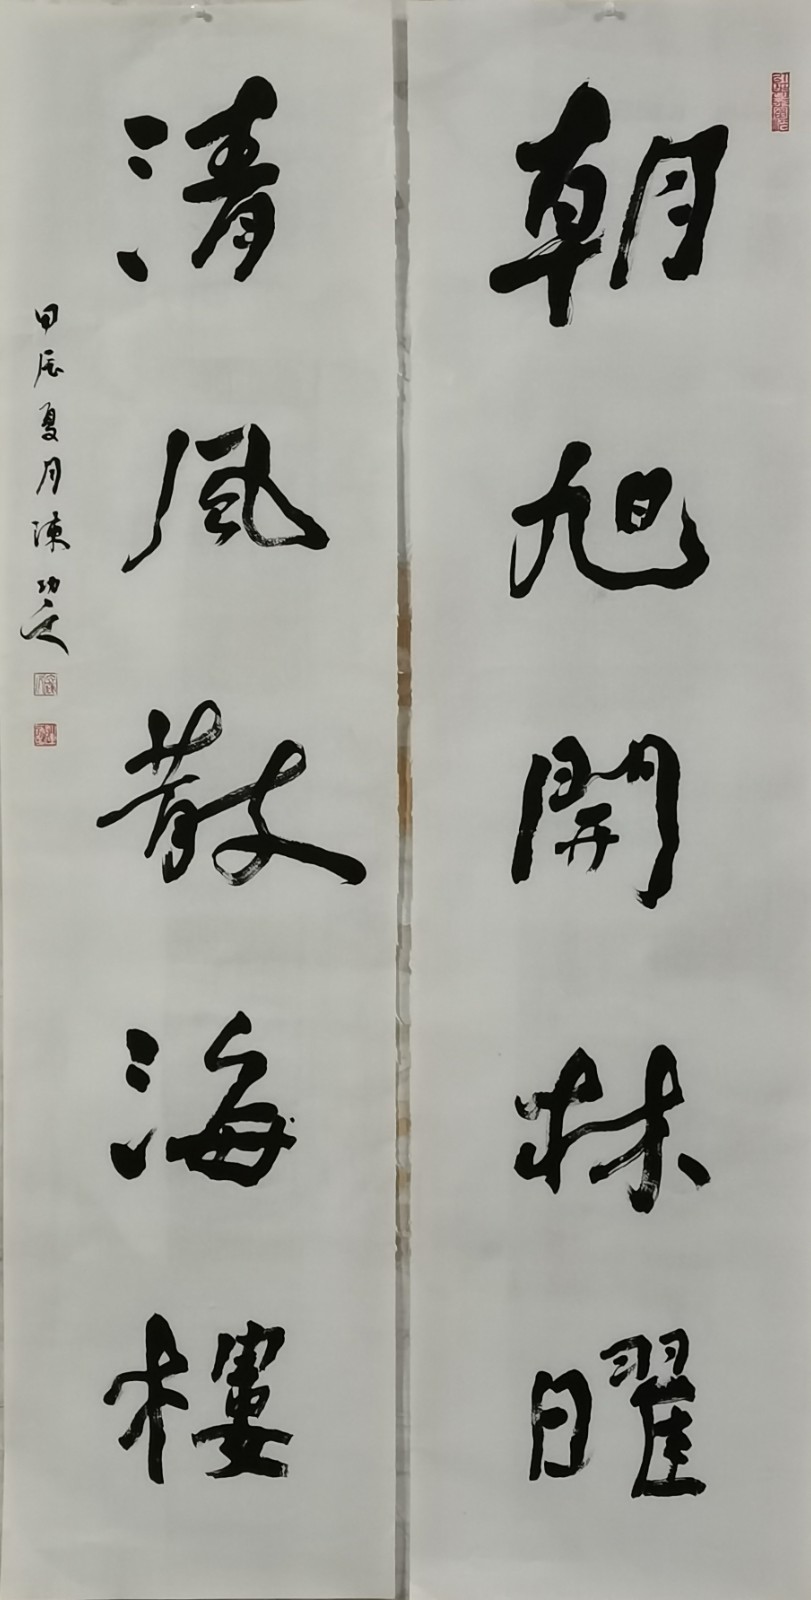 朝旭開林曜
清風散海樓
甲辰夏月陳功